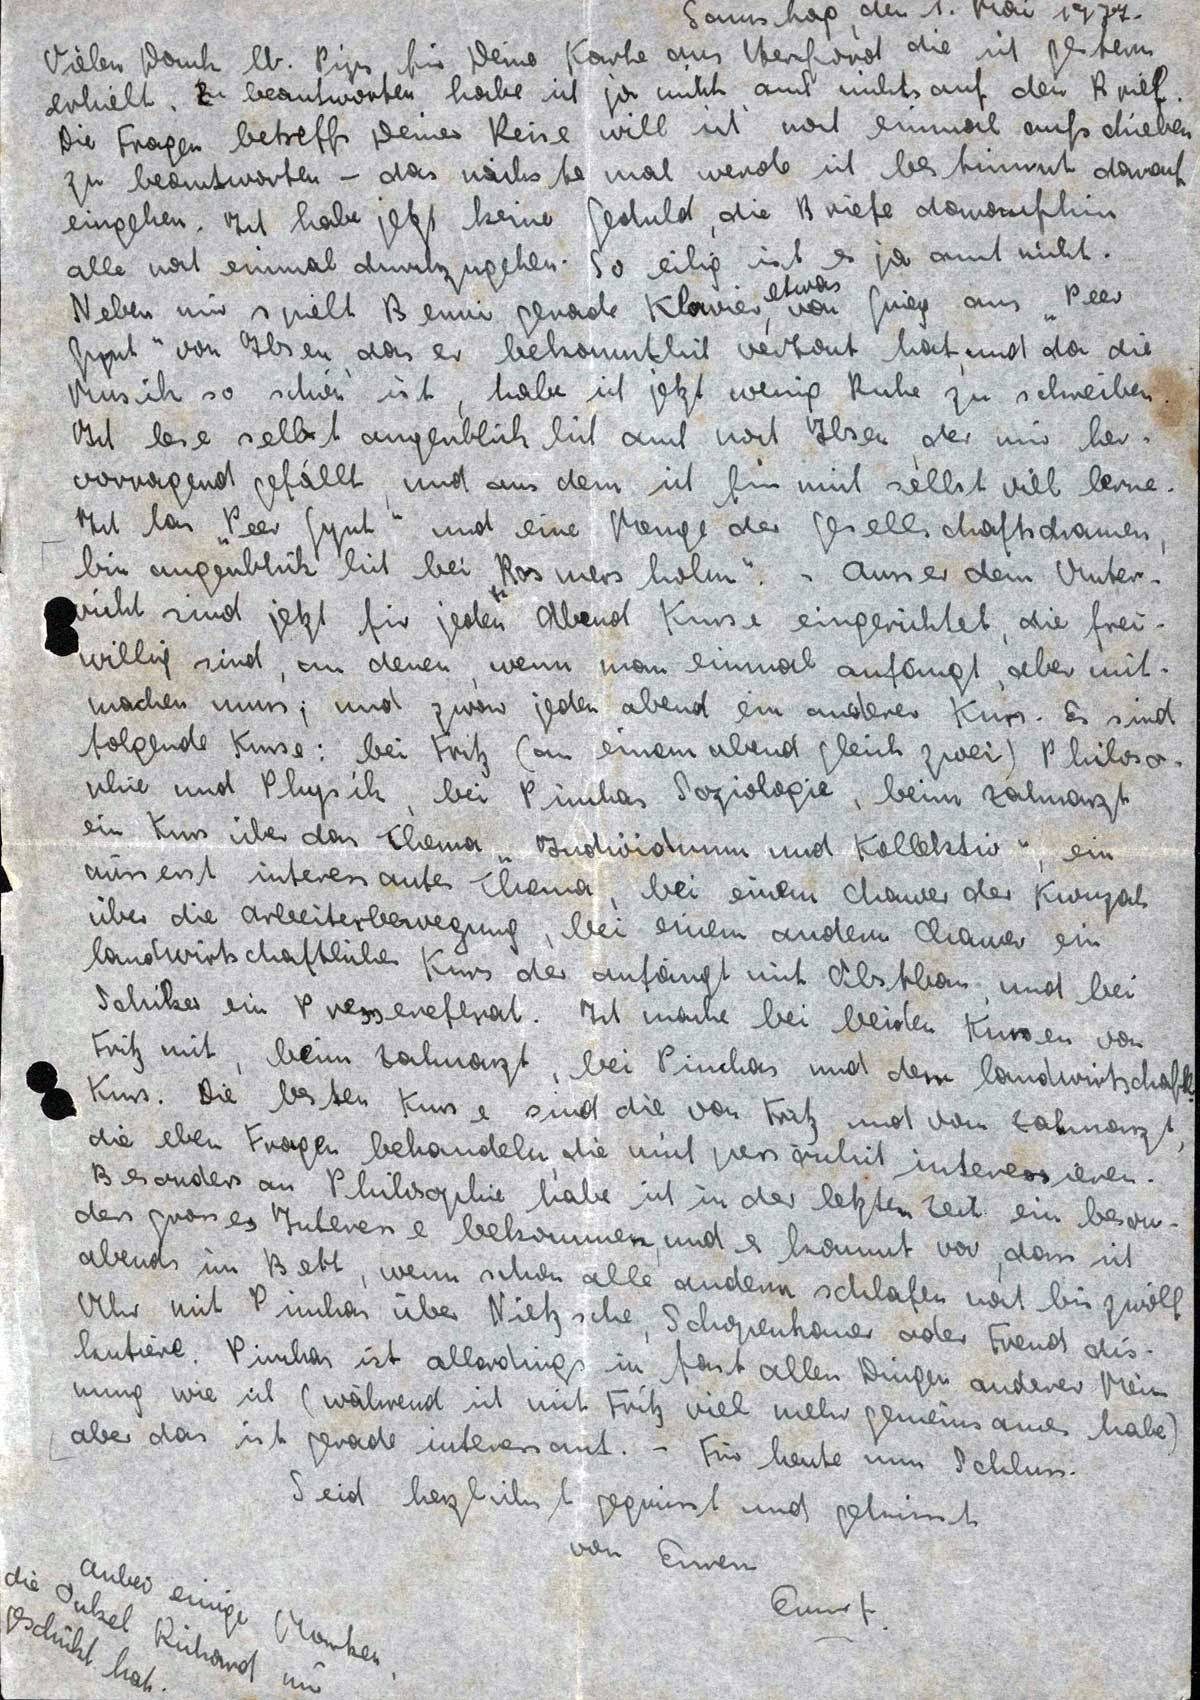 Samstag, den 1. Mai 1937.
Vielen Dank lb. Pips für Deine Karte aus Herford die ich gestern
erhielt. Zu beantworten habe ich ja nicht auch nichts auf den Brief.
Die Fragen betreffs Deiner Reise will ich noch einmal aufschieben
zu beantworten – das nächste mal werde ich bestimmt darauf
eingehen. Ich habe jetzt keine Geduld, die Briefe daraufhin
alle noch einmal durchzugehen. So eilig ist es ja auch nicht.
Neben mir spielt Benni gerade Klavier, etwas von Grieg aus „Peer
Gynt" von Ibsen, das er bekanntlich vertont hat, und da die
Musik so schön ist, habe ich jetzt wenig Ruhe zu schreiben.
Ich lese selbst augenblicklich auch noch Ibsen, der mir her-
vorragend gefällt, und aus dem ich für mich selbst viel lerne.
Ich las „Peer Gynt" und eine Menge der Gesellschaftsdramen,
bin augenblicklich bei „Rosmersholm". – Ausser dem Unter-
richt sind jetzt für jeden Abend Kurse eingerichtet, die frei-
willig sind, an denen, wenn man einmal anfängt, aber mit-
machen muss; und zwar jeden abend ein anderer Kurs. Es sind
folgende Kurse: bei Fritz (an einem abend gleich zwei) Philoso-
phie und Physik, bei Pinchas Soziologie, beim Zahnarzt
ein Kurs über das Thema „Individuum und Kollektiv", ein
äusserst interessantes Thema, bei einem Chawer der Kwuzah
über die Arbeiterbewegung, bei einem andern Chawer ein
landwirtschaftlicher Kurs der anfängt mit Obstbau, und bei
Schiker ein Pressereferat. Ich mache bei beiden Kursen von
Fritz mit, beim Zahnarzt, bei Pinchas und dem landwirtschaftl.
Kurs. Die besten Kurse sind die von Fritz und vom Zahnarzt,
die eben Fragen behandeln, die mich persönlich interessieren.
Besonders an Philosophie habe ich in der letzten Zeit ein beson-
ders grosses Interesse bekommen, und es kommt vor, dass ich
abends im Bett, wenn schon alle andern schlafen noch bis zwölf
Uhr mit Pinchas über Nietzsche, Schopenhauer oder Freud dis-
kutiere. Pinchas ist allerdings in fast allen Dingen anderer Mein
nung wie ich (während ich mit Fritz viel mehr gemeinsames habe)
aber das ist gerade interessant. – Für heute nun Schluss.
Seid herzlichst gegrüsst und geküsst
von Euren
Ernst.
anbei einige Marken,
die Onkel Richard mir
geschickt hat.